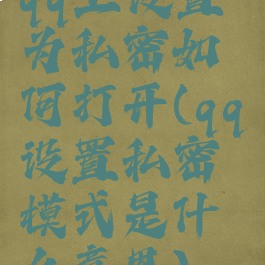 qq上设置
为私密如
何打开(qq
设置私密
模式是什
么意思)